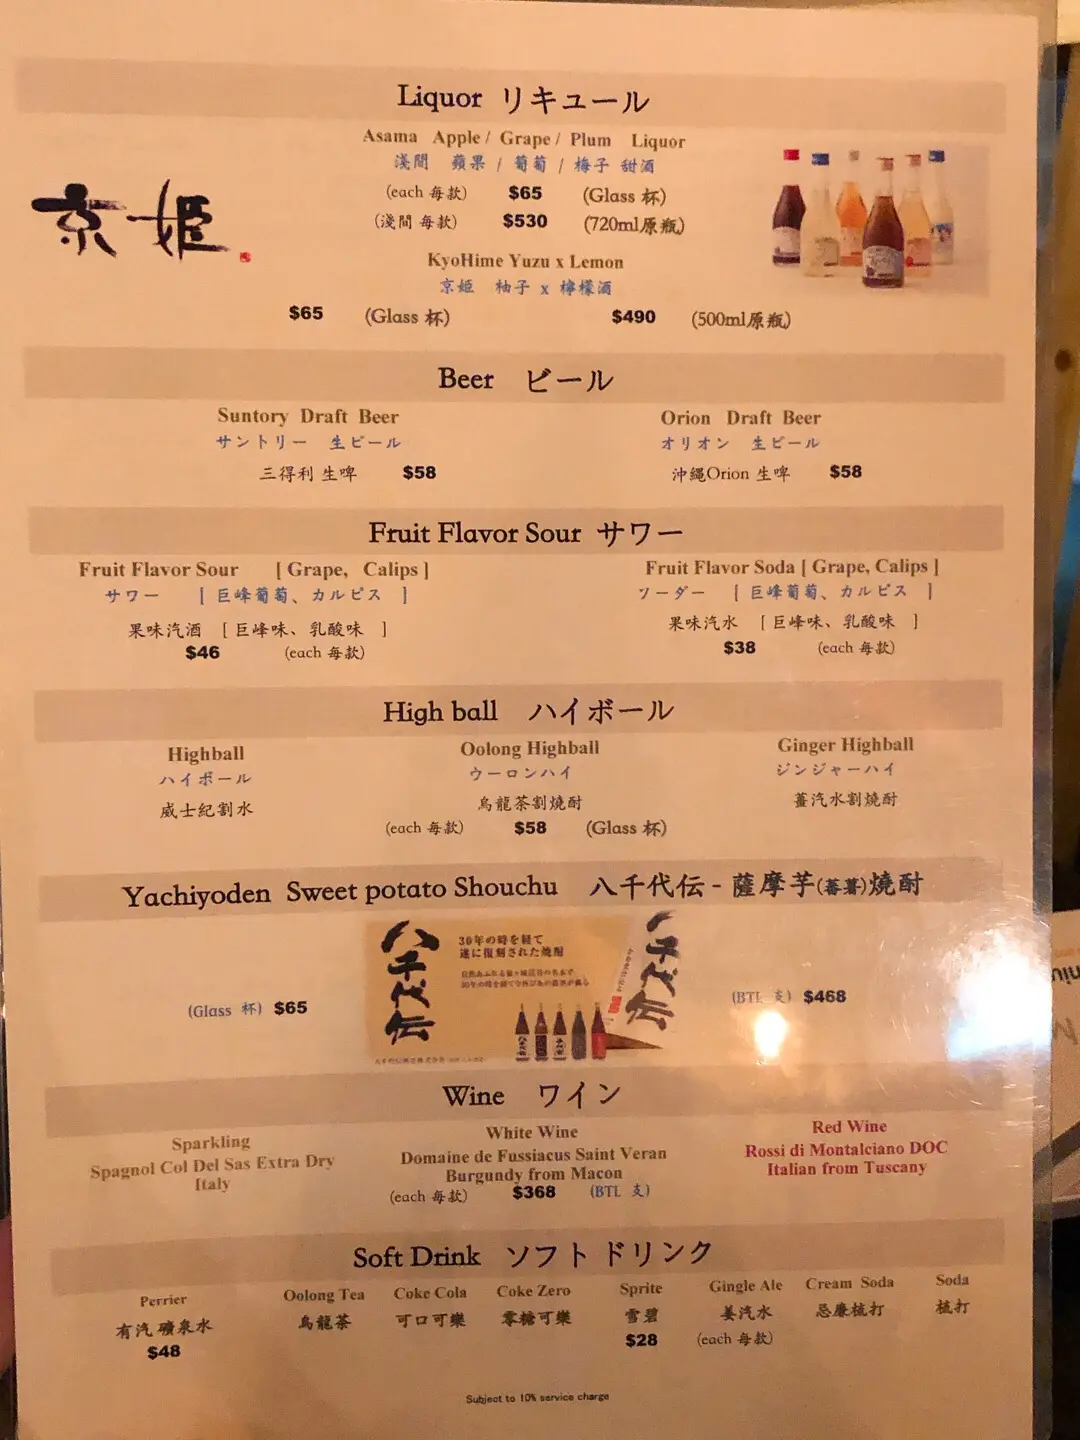 Liquor リキュール
Asama Apple / Grape / Plum Liquor
淺間 蘋果 / 葡萄 / 梅子 甜酒
(each 每款) $65 (Glass 杯)
(淺間 每款) $530 (720ml原瓶)
京姫
KyoHime Yuzu x Lemon
京姫 柚子 x 檸檬酒
$65 (Glass 杯) $490 (500ml原瓶)
Beer ビール
Suntory Draft Beer Orion Draft Beer
サントリー 生ビール オリオン 生ビール
三得利 生啤 $58 沖繩Orion 生啤 $58
Fruit Flavor Sour サワー
Fruit Flavor Sour [ Grape, Calips ] Fruit Flavor Soda [ Grape, Calips ]
サワー [ 巨峰葡萄、カルピス ] ソーダー [ 巨峰葡萄、カルピス ]
果味汽酒 [ 巨峰味、乳酸味 ] 果味汽水 [ 巨峰味、乳酸味 ]
$46 (each 每款) $38 (each 每款)
High ball ハイボール
Highball Oolong Highball Ginger Highball
ハイボール ウーロンハイ ジンジャーハイ
威士紀割水 烏龍茶割燒酎 薑汽水割燒酎
(each 每款) $58 (Glass 杯)
Yachiyoden Sweet potato Shouchu 八千代伝 - 薩摩芋(蕃薯)燒酎
八千代伝
30年の時を経て
遂に復刻された焼酎
八千代伝
(Glass 杯) $65 (BTL 支) $468
Wine ワイン
Sparkling White Wine Red Wine
Spagnol Col Del Sas Extra Dry Domaine de Fussiacus Saint Veran Rossi di Montalciano DOC
Italy Burgundy from Macon Italian from Tuscany
(each 每款) $368 (BTL 支)
Soft Drink ソフトドリンク
Perrier Oolong Tea Coke Cola Coke Zero Sprite Gingle Ale Cream Soda Soda
有汽 礦泉水 烏龍茶 可口可樂 零糖可樂 雪碧 姜汽水 忌廉梳打 梳打
$48 $28 (each 每款)
Subject to 10% service charge